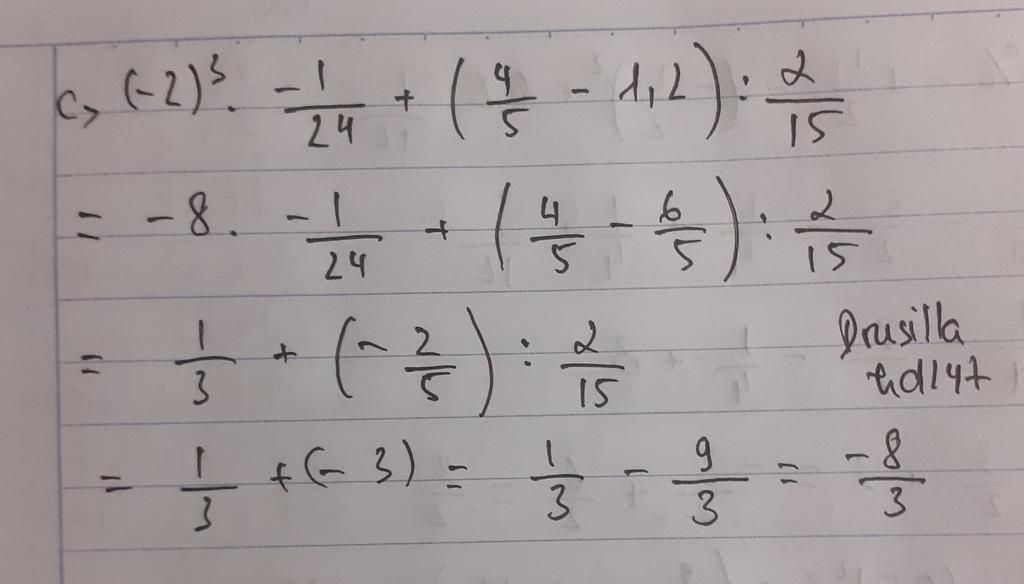 c> (-2)³ . -1/24 + (4/5 - 1,2) : 2/15
= -8 . -1/24 + (4/5 - 6/5) : 2/15
= 1/3 + (-2/5) : 2/15
Drusilla
= 1/3 + (-3) = 1/3 - 9/3 = -8/3